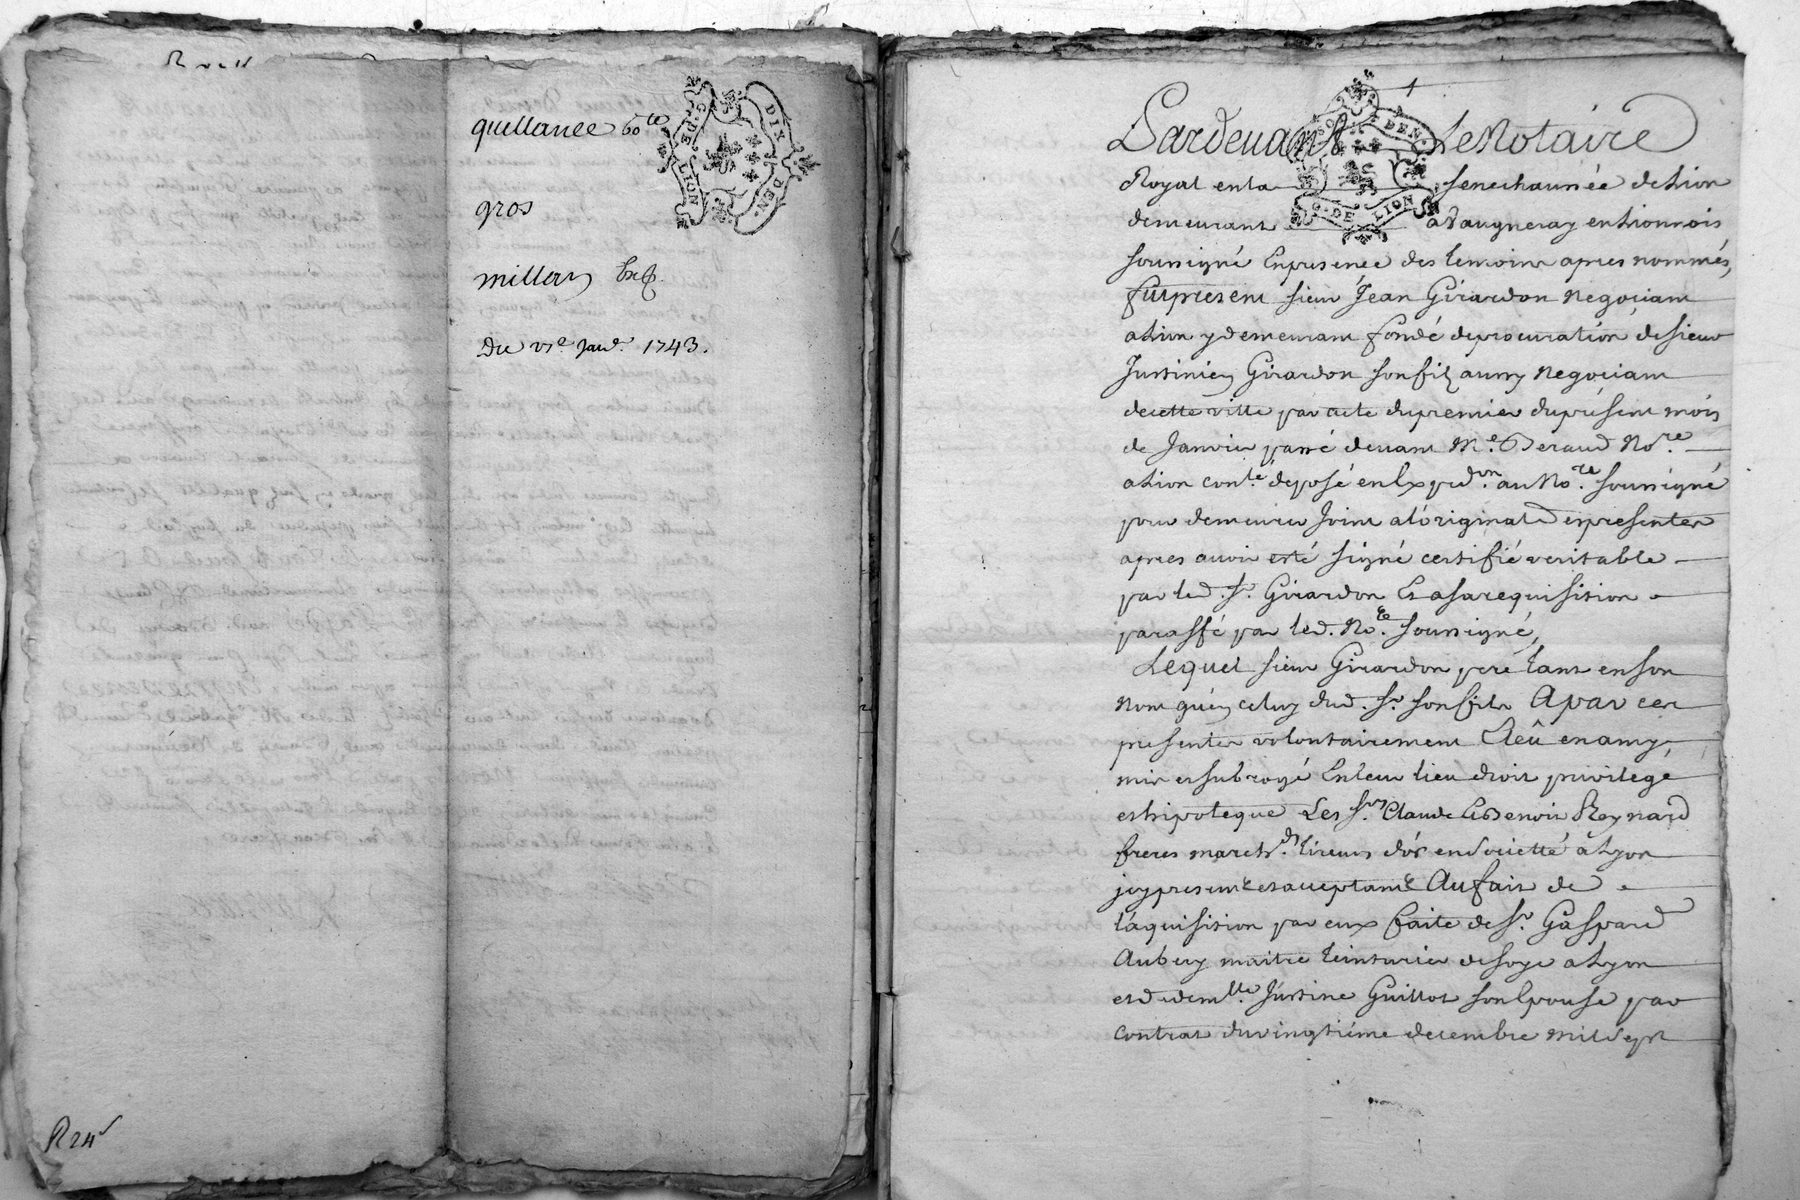 quittance 60ᵗᵗ
gros
millan
Du 17e Janr. 1743.
R 24s
G. DE LION DIX DEN.
1
Pardeuant Le Notaire
Royal en la senechaussée de Lion
demeurant a Vaugneray en Lionnois
soussigné En presence des temoins apres nommés,
fut present sieur Jean Girardon negociant
a Lion y demeurant fondé de procuration de sieur
Justinien Girardon son fils aussy negociant
de cette ville par acte du premier du présent mois
de Janvier passé devant Me. Deraud Nore
a Lion conlé déposé en Expedon. au Nore. soussigné
pour demeurer Joint a l'original des presentes
apres avoir esté signé certifié veritable
par led. sr. Girardon Et a sa requisition
paraffé par led. Nore. soussigné,
Lequel sieur Girardon pere tant en son
nom qu'en celuy dud. sr. son fils A par ces
presentes volontairement
mis et subrogé En leur lieu droit privilege
et hipoteque Les srs. Claude Et Benoit Reynard
freres marchds. tireurs d'or en societté a Lyon
icy presents et acceptants Au fait de
l'aquisition par eux faite de sr. Gaspard
Aubery maitre teinturier de soye a Lyon
et de demlle. Justine Guillot son Epouse par
contrat du vingtiéme decembre mil sept
G. DE LION DEN.